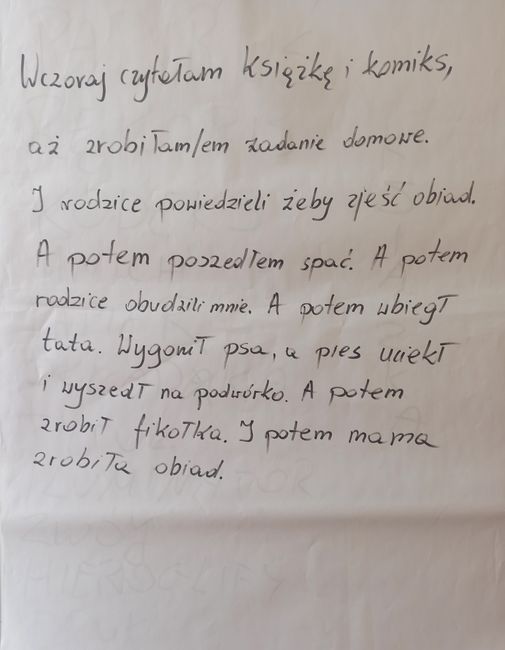 Wczoraj czytałam książkę i komiks,
aż zrobiłam/em zadanie domowe.
I rodzice powiedzieli żeby zjeść obiad.
A potem poszedłem spać. A potem
rodzice obudzili mnie. A potem wbiegł
tata. Wygonił psa, a pies uciekł
i wyszedł na podwórko. A potem
zrobił fikołka. I potem mama
zrobiła obiad.